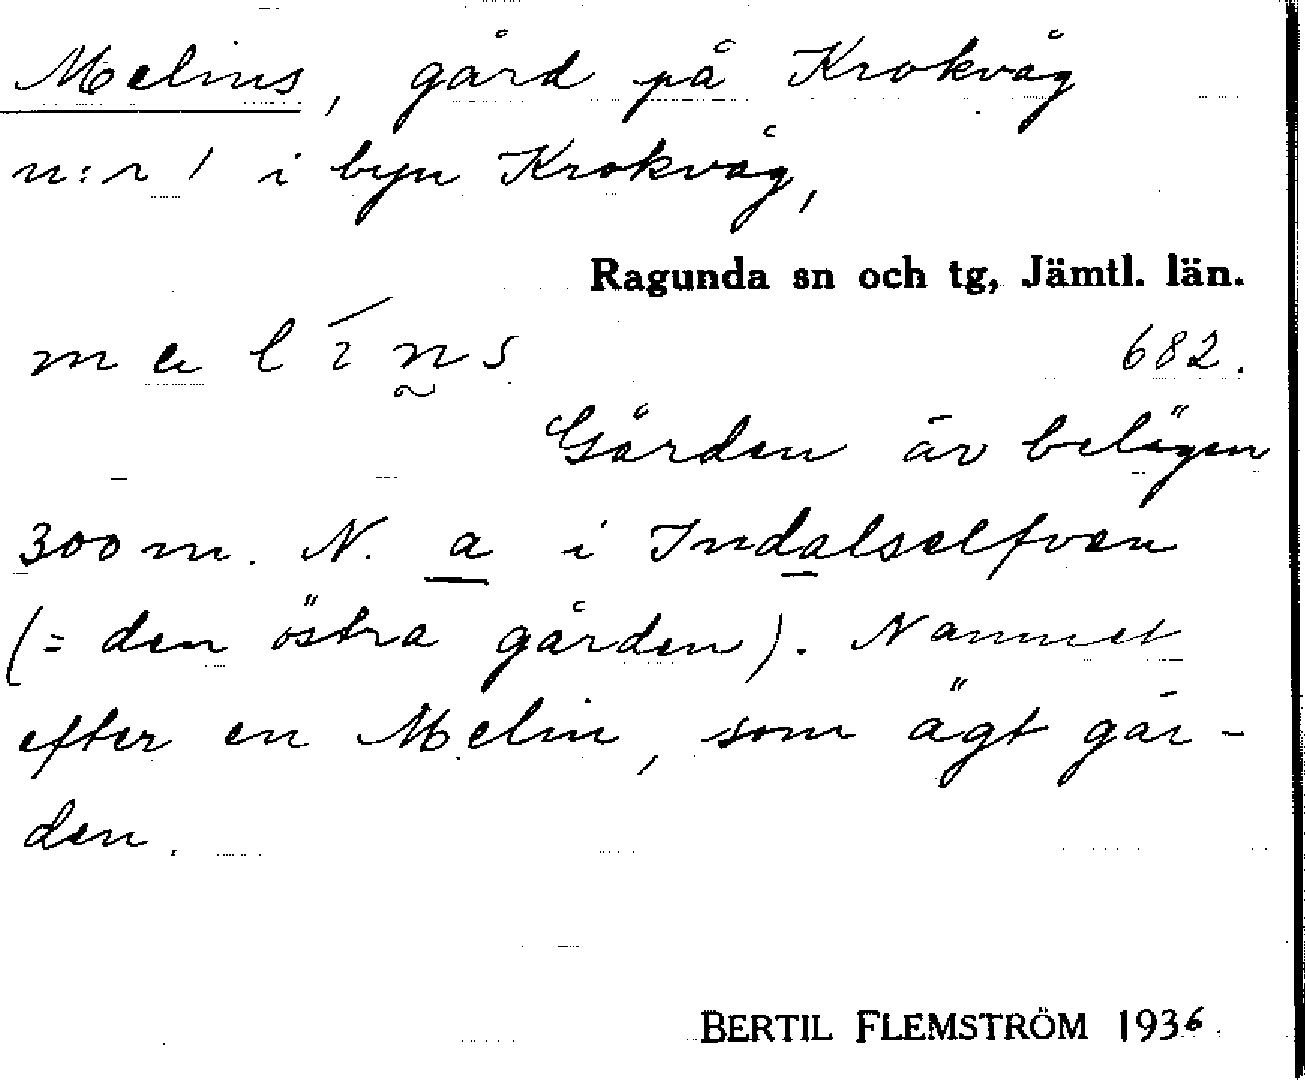 Melins, gård på Krokvåg
n:r 1 i byn Krokvåg,
Ragunda sn och tg, Jämtl. län.
melíns
682.
Gården är belägen
300 m. N. a i Indalselfven
(= den östra gården). Namnet
efter en Melin, som ägt går-
den.
BERTIL FLEMSTRÖM 1936